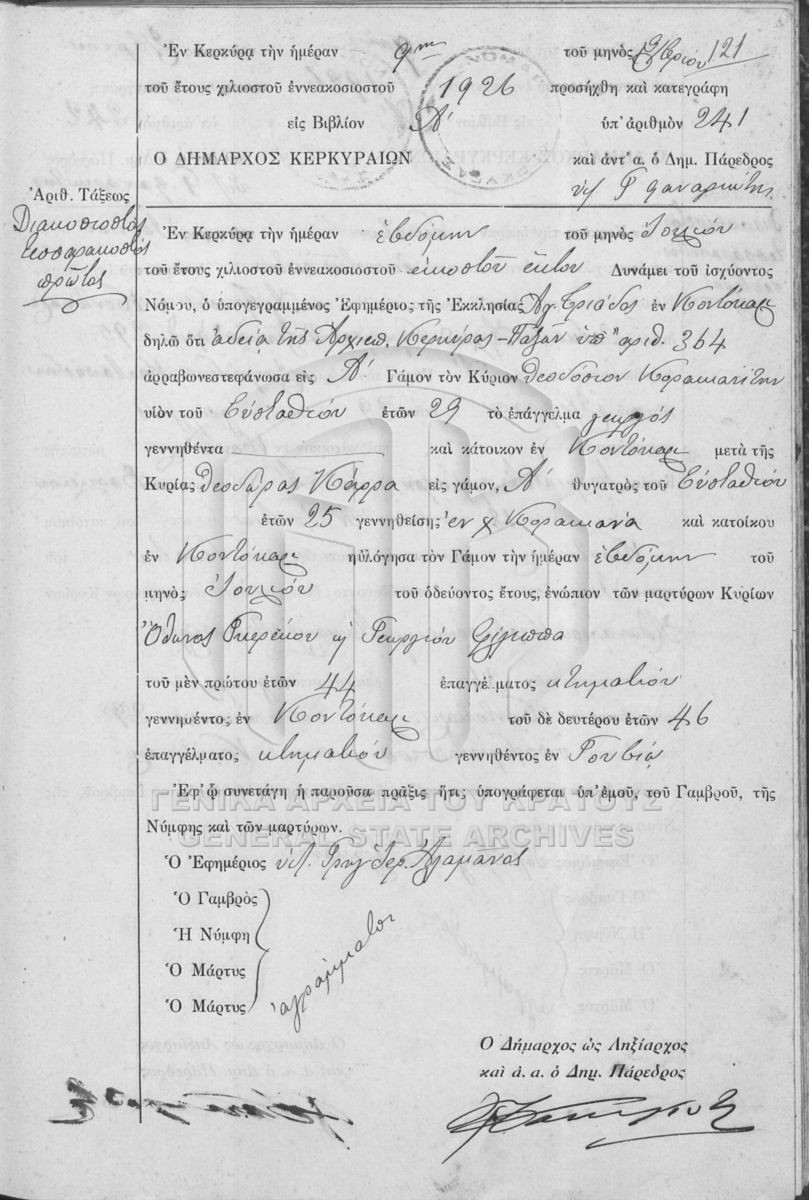 121
Ἐν Κερκύρᾳ τὴν ἡμέραν 9ην τοῦ μηνὸς
τοῦ ἔτους χιλιοστοῦ ἐννεακοσιοστοῦ 1926 προσήχθη καὶ κατεγράφη
εἰς Βιβλίον Α' ὑπ' ἀριθμὸν 241
Ο ΔΗΜΑΡΧΟΣ ΚΕΡΚΥΡΑΙΩΝ καὶ ἀντ' α. ὁ Δημ. Πάρεδρος
Ἀριθ. Τάξεως
Διακοσιοστὸς
τεσσαρακοστὸς
πρῶτος
Ἐν Κερκύρᾳ τὴν ἡμέραν ἑβδόμην τοῦ μηνὸς Ἰουλίου
τοῦ ἔτους χιλιοστοῦ ἐννεακοσιοστοῦ εἰκοστοῦ ἕκτου Δυνάμει τοῦ ἰσχύοντος
Νόμου, ὁ ὑπογεγραμμένος Ἐφημέριος τῆς Ἐκκλησίας Ἁγ. Τριάδος ἐν Κοντόκαλι
δηλῶ ὅτι ἀδείᾳ τῆς Ἀρχιεπ. Κερκύρας - Παξῶν ὑπ' ἀριθ. 364
ἀρραβωνεστεφάνωσα εἰς Α' Γάμον τὸν Κύριον Θεοδόσιον Κορακιανίτην
υἱὸν τοῦ Εὐσταθίου ἐτῶν 29 τὸ ἐπάγγελμα γεωργός
γεννηθέντα καὶ κάτοικον ἐν Κοντόκαλι μετὰ τῆς
Κυρίας Θεοδώρας Κάρρα εἰς γάμον, Α' θυγατρὸς τοῦ Εὐσταθίου
ἐτῶν 25 γεννηθείσης ἐν χ. Κορακιάνα καὶ κατοίκου
ἐν Κοντόκαλι ηὐλόγησα τὸν Γάμον τὴν ἡμέραν ἑβδόμην τοῦ
μηνὸς Ἰουλίου τοῦ ὁδεύοντος ἔτους, ἐνώπιον τῶν μαρτύρων Κυρίων
Ὄθωνος Γκερέκου ἢ Γεωργίου Φίλιππα
τοῦ μὲν πρώτου ἐτῶν 44 ἐπαγγέλματος κτηματίου
γεννηθέντος ἐν Κοντόκαλι τοῦ δὲ δευτέρου ἐτῶν 46
ἐπαγγέλματος κτηματίου γεννηθέντος ἐν Γουβιά
Ἐφ' ᾧ συνετάγη ἡ παροῦσα πρᾶξις ἥτις ὑπογράφεται ὑπ' ἐμοῦ, τοῦ Γαμβροῦ, τῆς
ΓΕΝΙΚΑ ΑΡΧΕΙΑ ΤΟΥ ΚΡΑΤΟΥΣ
Νύμφης καὶ τῶν μαρτύρων.
GENERAL STATE ARCHIVES
Ὁ Ἐφημέριος
Ὁ Γαμβρὸς
Ἡ Νύμφη
Ὁ Μάρτυς
Ὁ Μάρτυς
ἀγράμματοι
Ο Δήμαρχος ὡς Ληξίαρχος
καὶ ἀ. α. ὁ Δημ. Πάρεδρος